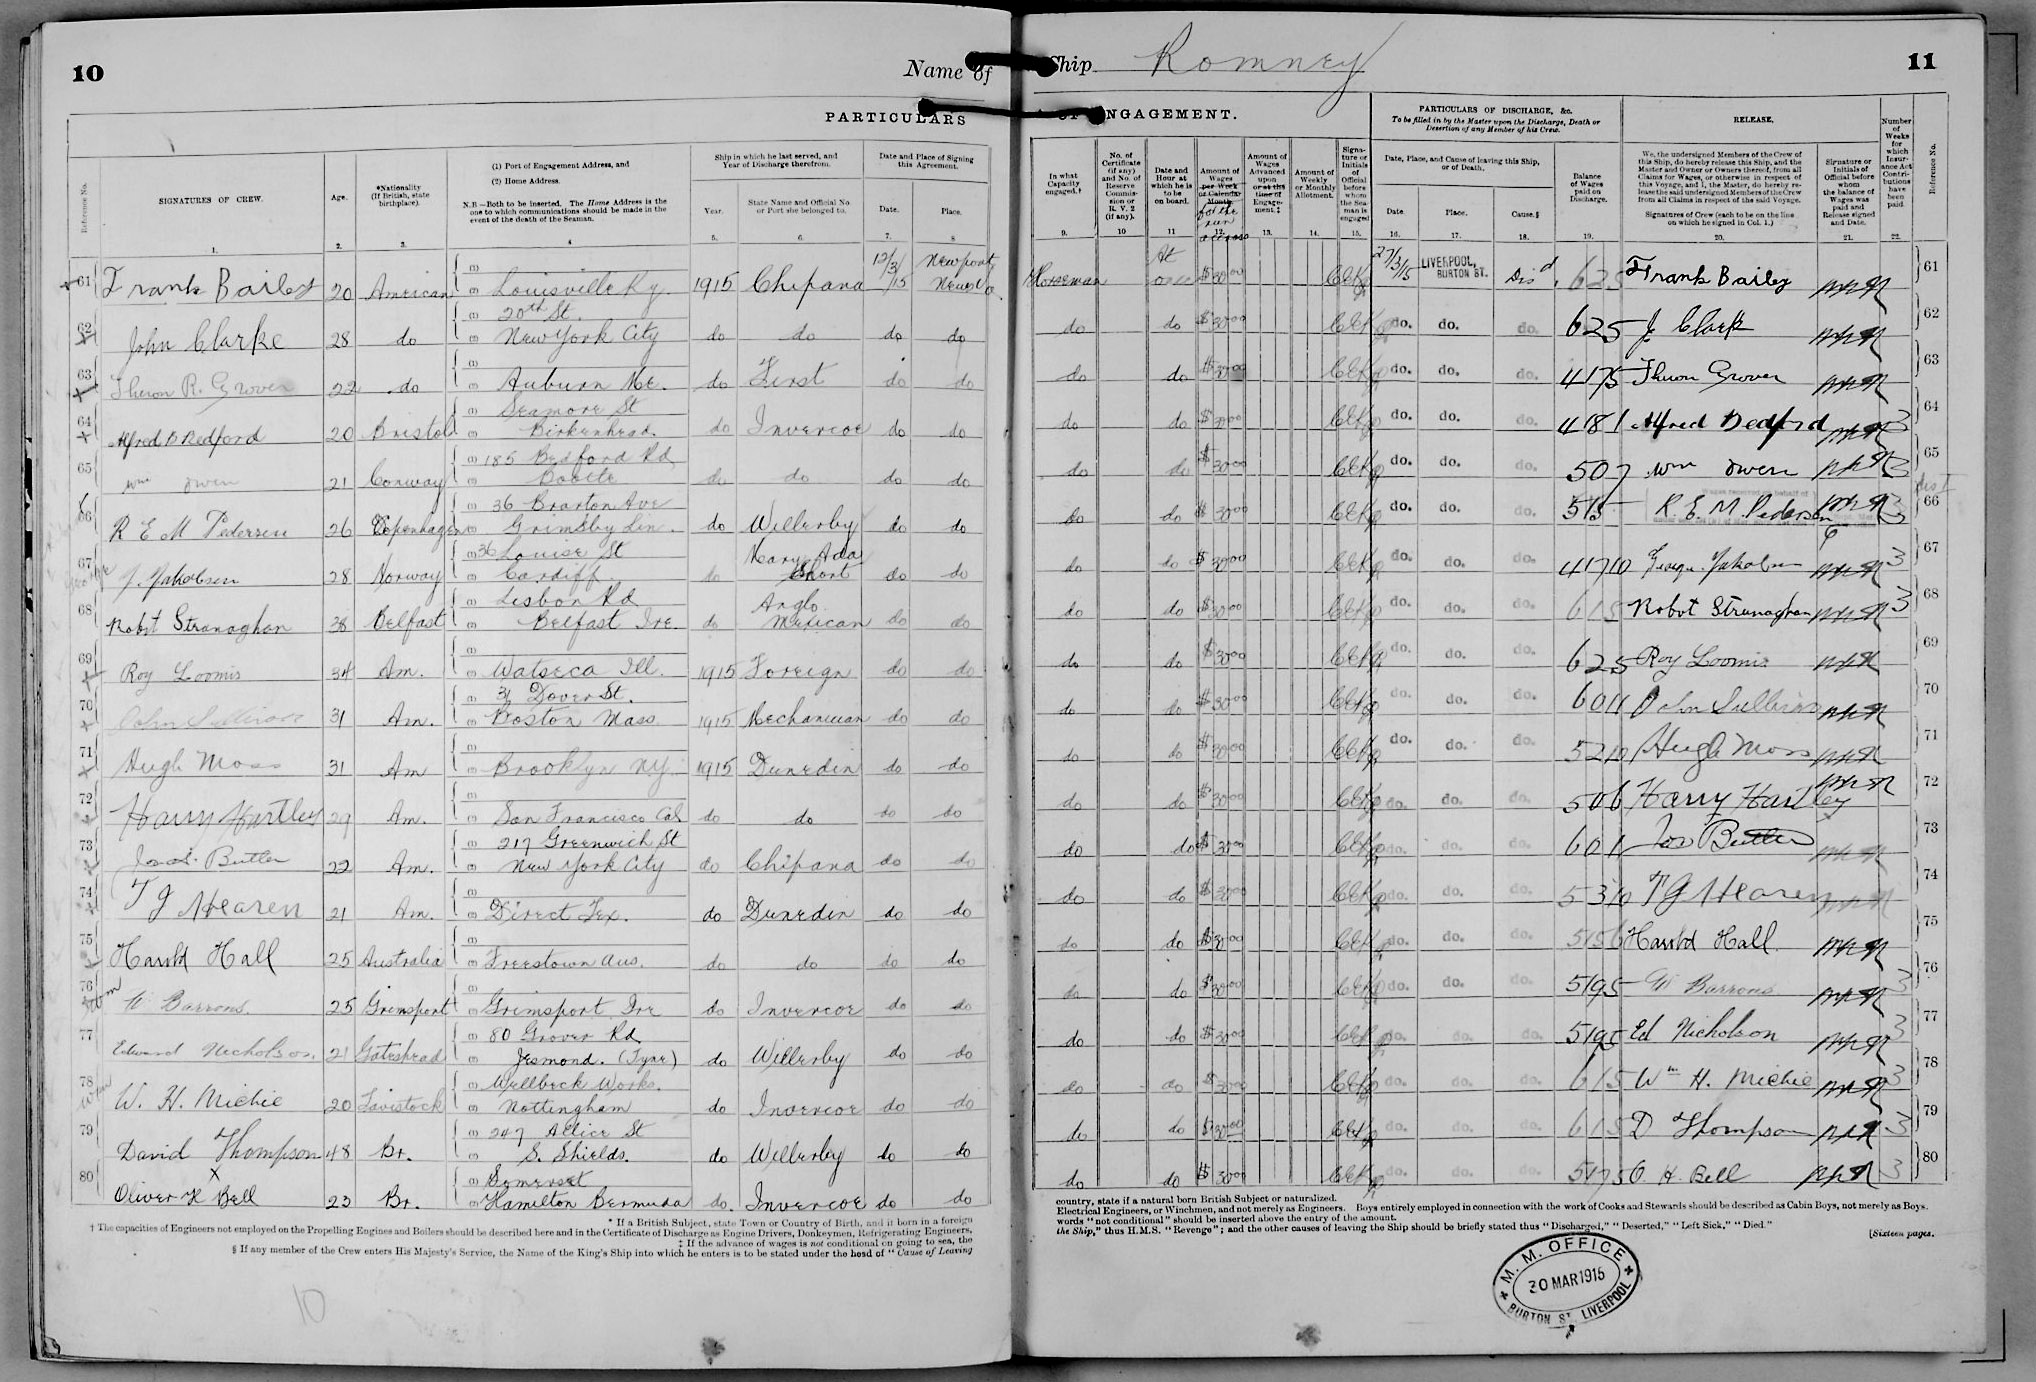 10
Name of
Ship Romney
11
PARTICULARS
OF ENGAGEMENT.
PARTICULARS OF DISCHARGE, &c.
To be filled in by the Master upon the Discharge, Death or Desertion of any Member of his Crew.
RELEASE.
Reference No.
SIGNATURES OF CREW.
Age.
*Nationality (If British, state birthplace).
(1) Port of Engagement Address, and
(2) Home Address.
N.B—Both to be inserted. The Home Address is the one to which communications should be made in the event of the death of the Seaman.
Ship in which he last served, and Year of Discharge therefrom.
Year.
State Name and Official No. or Port she belonged to.
Date and Place of Signing this Agreement.
Date.
Place.
In what Capacity engaged.†
No. of Certificate (if any) and No. of Reserve Commission or R. V. 2 (if any).
Date and Hour at which he is to be on board.
Amount of Wages per Week or Calendar Month.
for the run
Amount of Wages Advanced upon or at the time of Engagement.‡
Amount of Weekly or Monthly Allotment.
Signature or Initials of Official before whom the Seaman is engaged
Date, Place, and Cause of leaving this Ship, or of Death.
Date.
Place.
Cause.§
Balance of Wages paid on Discharge.
We, the undersigned Members of the Crew of this Ship, do hereby release this Ship, and the Master and Owner or Owners thereof, from all Claims for Wages, or otherwise in respect of this Voyage, and I, the Master, do hereby release the said undersigned Members of the Crew from all Claims in respect of the said Voyage.
Signatures of Crew (each to be on the line on which he signed in Col. 1.)
Signature or Initials of Official before whom the balance of Wages was paid and Release signed and Date.
Number of Weeks for which Insurance Act Contributions have been paid.
Reference No.
1. 2. 3. 4 5. 6. 7. 8
9. 10 11 12. 13. 14. 15. 16. 17. 18. 19. 20. 21. 22.
61 Frank Bailey 20 American Louisville Ky. 1915 Chipana 12/3/15 Newport News Va Horseman At once $30.00 27/3/15 LIVERPOOL, BURTON ST. Disd 6 2 5 Frank Bailey 61
62 John Clarke 28 do 20th St. New York City do do do do do do $30.00 do. do. do. 6 2 5 J Clark 62
63 Theron R. Grover 22 do Auburn Me. do First do do do do $30.00 do. do. do. 4 17 5 Theron Grover 63
64 Alfred D Bedford 20 Bristol Seamore St Birkenhead. do Invercoe do do do do $30.00 do. do. do. 4 8 1 Alfred Bedford 3 64
65 Wm Owen 21 Conway 185 Bedford Rd Bootle do do do do do do $30.00 do. do. do. 5 0 7 Wm Owen 3 65
66 R E M Pedersen 26 Copenhagen 36 Brarton Ave Grimsby Lin. do Willerby do do do do $30.00 do. do. do. 5 1 5 R. E. M. Pedersen 3 66
67 Y. Yakobsen 28 Norway 36 Louise St Cardiff. do Mary Ada Short do do do do $30.00 do. do. do. 4 17 10 George Yakobsen 3 67
68 Robt Stranaghan 38 Belfast Lisbon Rd Belfast Ire. do Anglo Mexican do do do do $30.00 do. do. do. 6 1 5 Robt Stranaghan 3 68
69 Roy Loomis 34 Am. Watseca Ill. 1915 Foreign do do do do $30.00 do. do. do. 6 2 5 Roy Loomis 69
70 John Sullivan 31 Am. 31 Dover St. Boston Mass 1915 Mechanician do do do do $30.00 do. do. do. 6 0 11 John Sullivan 70
71 Hugh Moss 31 Am Brooklyn NY. 1915 Dunedin do do do do $30.00 do. do. do. 5 2 10 Hugh Moss 71
72 Harry Hartley 29 Am. San Francisco Cal do do do do do do $30.00 do. do. do. 5 0 6 Harry Hartley 72
73 Jos. Butler 22 Am. 217 Greenwich St New York City do Chipana do do do do $30.00 do. do. do. 6 0 1 Jos Butler 73
74 T J Hearen 21 Am. Direct Tex. do Dunedin do do do do $30.00 do. do. do. 5 3 10 T J Hearen 74
75 Harold Hall 25 Australia Freestown Aus. do do do do do do $30.00 do. do. do. 5 15 6 Harold Hall. 75
76 W Barrons. 25 Grimsport Grimsport Ire do Invercoe do do do do $30.00 do. do. do. 5 19 5 W Barrons 3 76
77 Edward Nicholson. 21 Gateshead 80 Grover Rd Jesmond. (Tyne) do Willerby do do do do $30.00 do. do. do. 5 19 5 Ed Nicholson 3 77
78 W. H. Michie 20 Tavistock Wellbeck Works. Nottingham do Invercoe do do do do $30.00 do. do. do. 6 1 5 Wm H. Michie 3 78
79 David Thompson 48 Br. 247 Allice St S. Shields. do Willerby do do do do $30.00 do. do. do. 6 1 5 D Thompson 3 79
80 Oliver H Bell X 23 Br. Somerset Hamilton Bermuda do. Invercoe do do do do $30.00 do. do. do. 5 17 5 O H. Bell 3 80
* If a British Subject, state Town or Country of Birth, and if born in a foreign
country, state if a natural born British Subject or naturalized.
† The capacities of Engineers not employed on the Propelling Engines and Boilers should be described here and in the Certificate of Discharge as Engine Drivers, Donkeymen, Refrigerating Engineers,
Electrical Engineers, or Winchmen, and not merely as Engineers. Boys entirely employed in connection with the work of Cooks and Stewards should be described as Cabin Boys, not merely as Boys.
‡ If the advance of wages is not conditional on going to sea, the
words "not conditional" should be inserted above the entry of the amount.
§ If any member of the Crew enters His Majesty's Service, the Name of the King's Ship into which he enters is to be stated under the head of "Cause of Leaving
the Ship," thus H.M.S. "Revenge"; and the other causes of leaving the Ship should be briefly stated thus "Discharged," "Deserted," "Left Sick," "Died."
[Sixteen pages.
M. M. OFFICE
30 MAR 1915
BURTON ST. LIVERPOOL
10